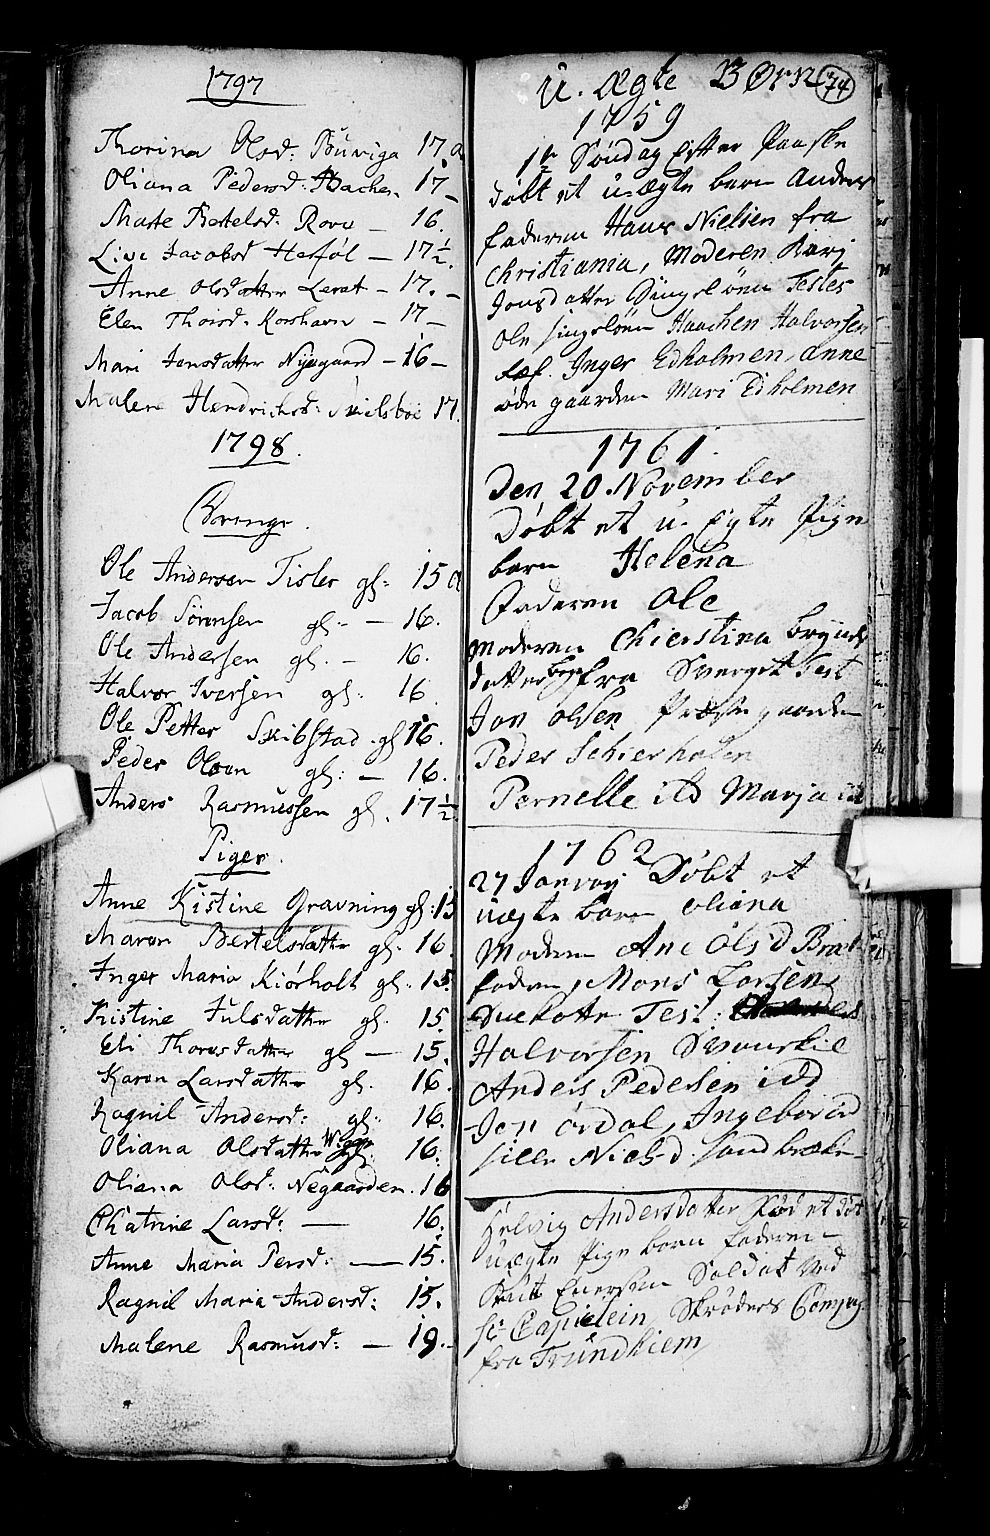 1797
Thorina Olsd: Buviga 17 a
Oliana Pedersd: Bachen 17 –
Marte Bertelsd: Rove – 16.
Live Jacobsd Herføl – 17 ½.
Anne Olsdatter Leret – 17. –
Elen Thorsd: Korshavn – 17 –
Mari Jensdatter Nygaard – 16 –
Malene Hendrichsd: Skielsboe 17.
1798.
Drenge.
Ole Andersen Tisler gl: 15 a
Jacob Sørensen gl: – 16.
Ole Andersen gl. – 16.
Halvor Iversen gl: 16
Ole Petter Skibstad gl 16.
Peder Olsen gl: – 16.
Anders Rasmussen gl. 17 ½
Piger.
Anne Kistine Gravning gl: 15
Maren Bertelsdatter gl: 16
Inger Maria Kiørholt gl: 15.
Kristine Julsdatter gl. 15
Eli Thoresdatter gl – 15.
Karen Larsdatter gl. 16.
Ragnil Andersd: gl: 16.
Oliana Olsdatter gl: 16.
Oliana Olsd: Negaarden. 16
Chatrine Larsd: — 16.
Anne Maria Persd: — 15.
Ragnil Maria Andersd: 15.
Malene Rasmusd: — 19.
U. Ægte Børn 74
1759
1te Søndag Efter Paaske
døbt et u-ægte barn Anders
faderen Hans Nielsen fra
Christiania, Moderen Kari
Jonsdatter Singeløen Testes
Ole singeløen Haachen Halvorsen
Inger Edholmen, anne
øde gaarden Mari Edholmen
1761.
Den 20 November
Døbt et u-Egte Pige
barn Helena
Faderen Ole
Moderen Chierstina brynds
datter begge fra Sverget Test
Jon olsen Præste gaarden
Peder Schierholen
Pernelle ild Marja id
1762
27 Janvary Døbt et
uægte barn oliana
Moderen Ane Ols d Brat
faderen, Mons Larsen
Test:
Halvorsen
Anders Pedersen idd
Jon ørdal, Ingebor id
sille Niels d. sand bræke
Helvig Andersdatter Fød et døt
uægte Pige barn faderen
Knut Enersen Soldat ved
hr Capitein Skrøders Compag
fra Trundhiem